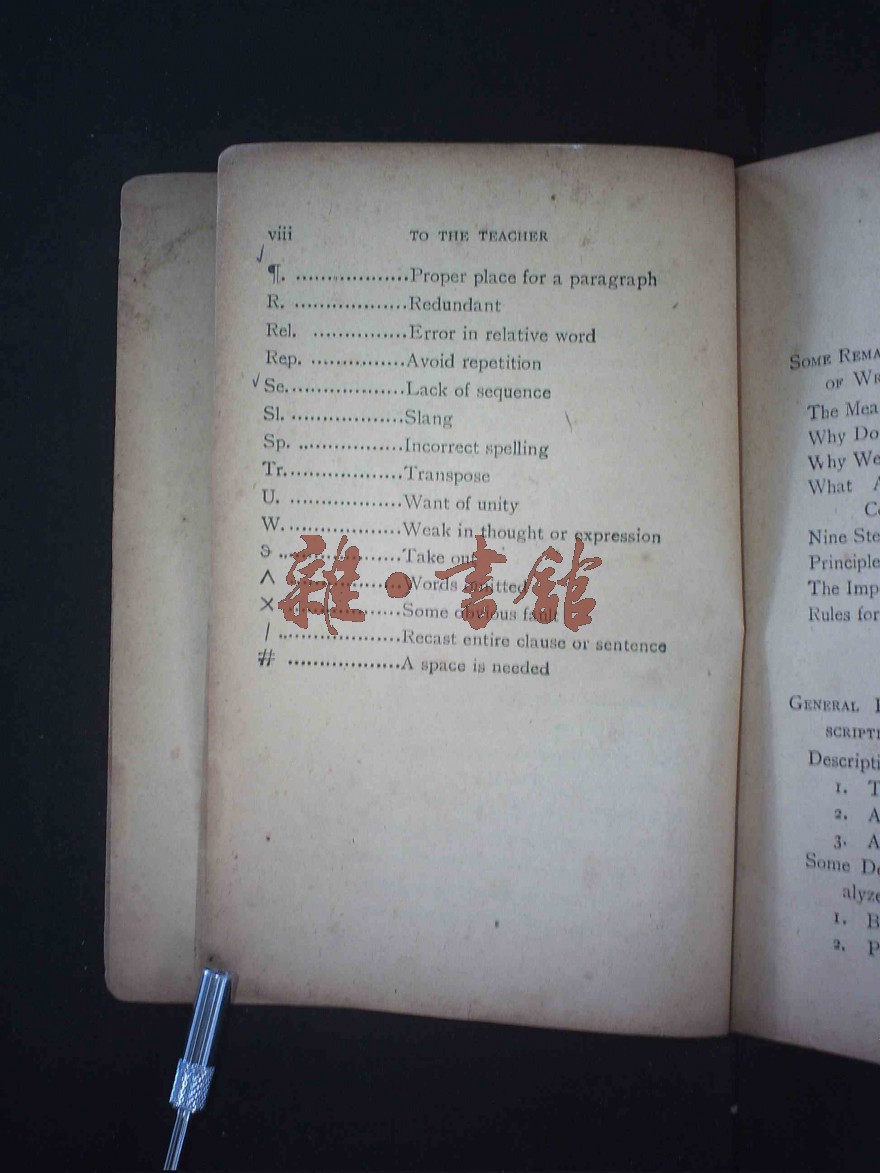 viii TO THE TEACHER
¶. ...................Proper place for a paragraph
R. ...................Redundant
Rel. ................Error in relative word
Rep. ................Avoid repetition
Se....................Lack of sequence
Sl. ...................Slang
Sp. ..................Incorrect spelling
Tr....................Transpose
U. ...................Want of unity
W....................Weak in thought or expression
...................Take out
^ ...................Words omitted
× ...................Some obvious fault
| ...................Recast entire clause or sentence
# ...................A space is needed
雜·書館
SOME REMA
OF WR
The Mea
Why Do
Why We
What A
Co
Nine Ste
Principle
The Imp
Rules for
GENERAL
SCRIPTI
Descripti
1. T
2. A
3. A
Some De
alyze
1. B
2. P